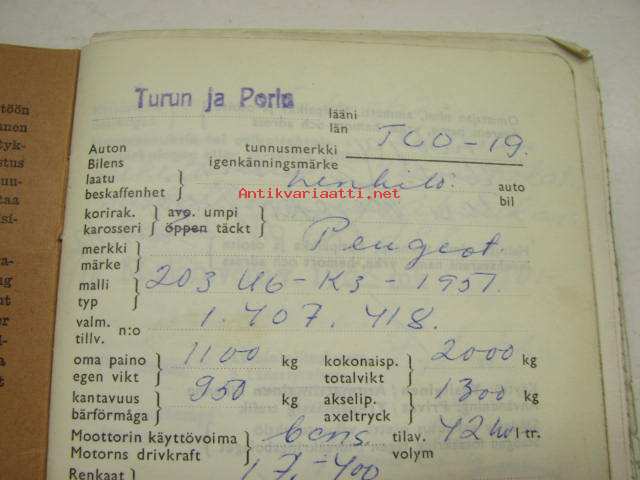 töön
nen
tyk-
stus
uu-
taa
si-
a-
ng
nt
er
lla
a
ät
Turun ja Porin
lääni
län TCO-19.
Auton tunnusmerkki
Bilens igenkänningsmärke
laatu
beskaffenhet henkilö. auto
bil
Antikvariaatti.net
korirak. avo. umpi
karosseri öppen täckt
merkki
märke Peugeot.
malli
typ 203 U6-K3-1951.
valm.
tillv. n:o 1.407.418.
oma paino
egen vikt 1100 kg kokonaisp.
totalvikt 2000 kg
kantavuus
bärförmåga 950 kg akselip.
axeltryck 1300 kg
Moottorin käyttövoima
Motorns drivkraft bens. tilav.
volym 42 hv ltr.
Renkaat 17-400